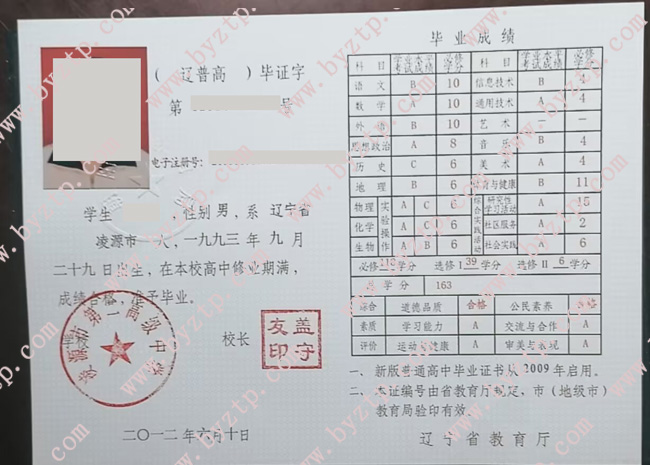 （ 辽普高 ）毕证字
第 号
电子注册号：
学生 ，性别 男，系 辽宁省
凌源市 人，一九九三 年 九 月
二十九日出生，在本校高中修业期满，
成绩合格，准予毕业。
学校
凌源市第一高级中学
校长
友盖
印守
二〇一二年六月十日
毕业成绩
科 目 学业水平考试成绩 必修学分 科 目 学业水平考试成绩 必修学分
语 文 B 10 信息技术 B 4
数 学 A 10 通用技术 A 4
外 语 B 10 艺 术 — —
思想政治 A 8 音 乐 B 4
历 史 C 6 美 术 A 4
地 理 B 6 体育与健康 B 11
物理 实验操作 A C 6 综合实践活动 研究性学习活动 A 15
化学 A C 6 社区服务 A 2
生物 A B 6 社会实践 A 6
必修 112 学分 选修Ⅰ 39 学分 选修Ⅱ 6 学分
总 学分 163
综合 道德品质 合格 公民素养 合格
素质 学习能力 A 交流与合作 A
评价 运动与健康 A 审美与表现 A
一、新版普通高中毕业证书从2009年启用。
二、本证编号由省教育厅规定，市（地级市）
教育局验印有效。
辽宁省教育厅
www.byztp.com